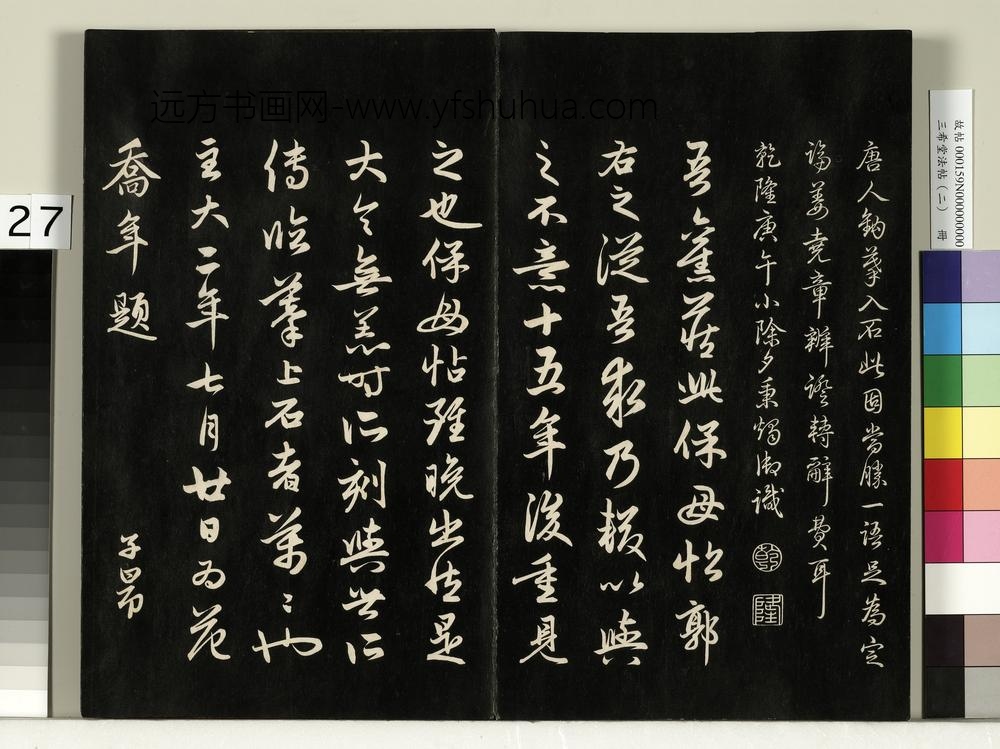 唐人鈎摹入石此固當勝一語足為定
論姜堯章辨證轉辭費耳
乾隆庚午小除夕秉燭御識
乾
隆
吾舊藏此保母帖郭
右之從吾求乃輟以與
之不意十五年後重見
之也保母帖雖晚出然是
大令無恙時所刻與世所
傳臨摹上石者萬萬也
至大二年七月廿日為范
喬年題
子昂
远方书画网-www.yfshuhua.com
故帖 000159N000000000
三希堂法帖(二) 冊
27